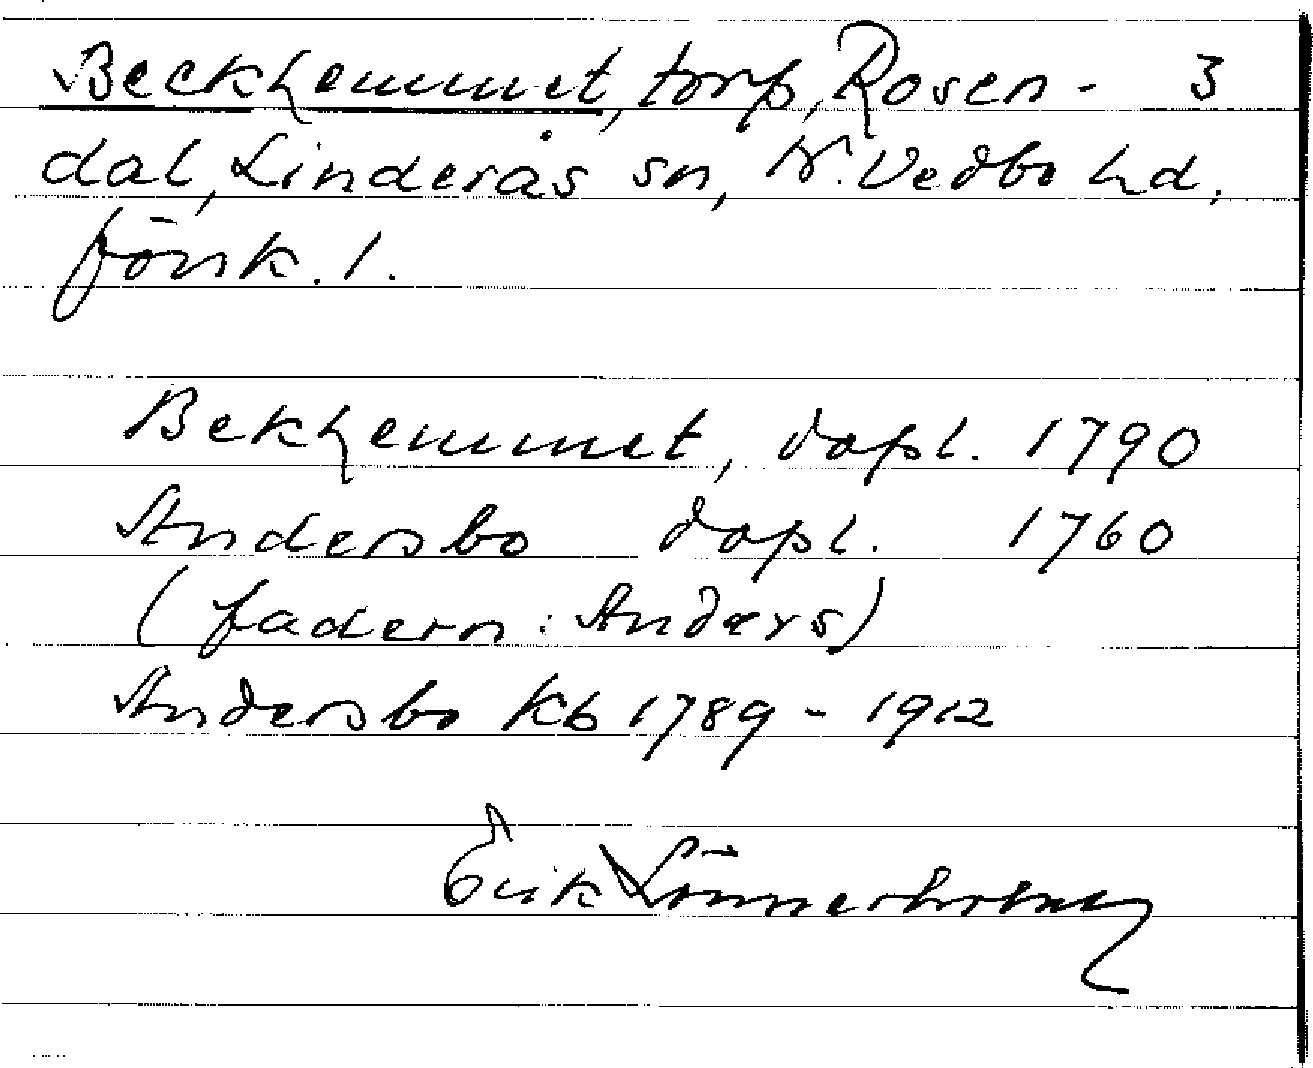 Beckhemmet, torp, Rosen- 3
dal, Linderås sn, N. Vedbo hd,
Jönk. l.
Bekhemmet, dopl. 1790
Andersbo dopl. 1760
(fadern: Anders)
Andersbo Kb 1789 - 1912
Erik